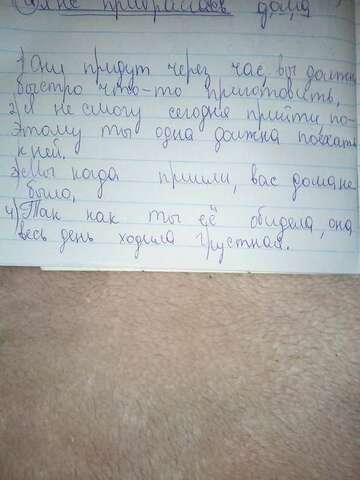 дома
1) Они придут через час, вы должны
быстро что-то приготовить,
2) Я не смогу сегодня прийти по-
этому ты одна должна поехать
к ней.
3) Мы когда пришли, вас дома не
было,
4) Так как ты её обидела, она
весь день ходила грустная.